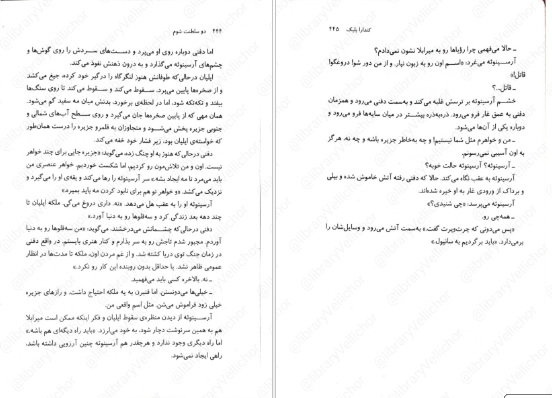 ۴۴۴ دو سلطنت شوم
اما دفنی دوباره روی او می‌پرد و دست‌های سردش را روی گوش‌ها و
چشم‌های آرسینوئه می‌گذارد و به درون ذهنش نفوذ می‌کند.
ایلیان درحالی‌که طوفانش هنوز لنگرگاه را درگیر خود کرده، جیغ می‌کشد
و از صخره‌ها پایین می‌پرد. سقوط می‌کند و سقوط می‌کند تا روی سنگ‌ها
بیفتد و تکه‌تکه شود. اما در لحظه‌ی برخورد، بدنش میان مه سفید گم می‌شود.
همان مهی که از پایین صخره‌ها جان می‌گیرد و روی سطح آب‌های شمالی و
جنوبی جزیره پخش می‌شود و متجاوزان به قلمرو جزیره را درست همان‌طور
که خواسته‌ی ایلیان بود، زیر فشار خود خفه می‌کند.
دفنی درحالی‌که هنوز به او چنگ زده، می‌گوید: «جزیره جایی برای چند خواهر
نیست. اون و من تلاش‌مون رو کردیم، اما شکست خوردیم. خواهر عنصری من
باید می‌مرد تا مه ایجاد بشه.» سر آرسینوئه را رها می‌کند و یقه‌ی او را می‌گیرد و
نزدیک می‌کشد. «و خواهر تو هم برای نابود کردن مه باید بمیره.»
آرسینوئه او را به عقب هل می‌دهد. «نه. داری دروغ می‌گی. ملکه ایلیان تا
چند دهه بعد زندگی کرد و سه‌قلوها رو به دنیا آورد.»
دفنی درحالی‌که چشمانش می‌درخشند، می‌گوید: «من سه‌قلوها رو به دنیا
آوردم. مجبور شدم تاجش رو به سر بذارم و کنار هنری بایستم. در واقع دفنی
در زمان جنگ توی دریا کشته شد. و از غم مردن اون، ملکه تا مدت‌ها در انظار
عمومی ظاهر نشد. یا حداقل بدون روبنده این کار رو نکرد.»
ـ نه. بالاخره کسی باید می‌فهمید.
ـ خیلی‌ها می‌دونستن. اما فنبرن به یه ملکه احتیاج داشت. و رازهای جزیره
خیلی زود فراموش می‌شن. مثل اسم واقعی من.
آرسینوئه از دیدن منظره‌ی سقوط ایلیان و فکر اینکه ممکن است میرابلا
هم به همین سرنوشت دچار شود، به خود می‌لرزد. «باید راه دیگه‌ای هم باشه.»
اما راه دیگری وجود ندارد و هرچقدر هم آرسینوئه چنین آرزویی داشته باشد،
راهی ایجاد نمی‌شود.
کندارا بلیک ۴۴۵
ـ حالا می‌فهمی چرا رؤیاها رو به میرابلا نشون نمی‌دادم؟
آرسینوئه می‌غرد: «اسم اون رو به زبون نیار. و از من دور شو! دروغگو!
قاتل!»
ـ قاتل..؟
خشم آرسینوئه بر ترسش غلبه می‌کند و به‌سمت دفنی می‌رود و همزمان
دفنی به عمق غار فرو می‌رود. ذره‌به‌ذره بیشتر در میان سایه‌ها فرو می‌رود و
دوباره یکی از آن‌ها می‌شود.
ـ من و خواهرم مثل شما نیستیم! و چه به‌خاطر جزیره باشه و چه نه، هرگز
به اون آسیبی نمی‌رسونم.
ـ آرسینوئه؟ آرسینوئه حالت خوبه؟
آرسینوئه به عقب نگاه می‌کند. حالا که دفنی رفته آتش خاموش شده و بیلی
و برداک از ورودی غار به او خیره شده‌اند.
آرسینوئه می‌پرسد: «چی شنیدی؟»
ـ همه‌چی رو.
«پس می‌دونی که چرت‌وپرت گفت.» به‌سمت آتش می‌رود و وسایل‌شان را
برمی‌دارد. «باید برگردیم به سانپول.»